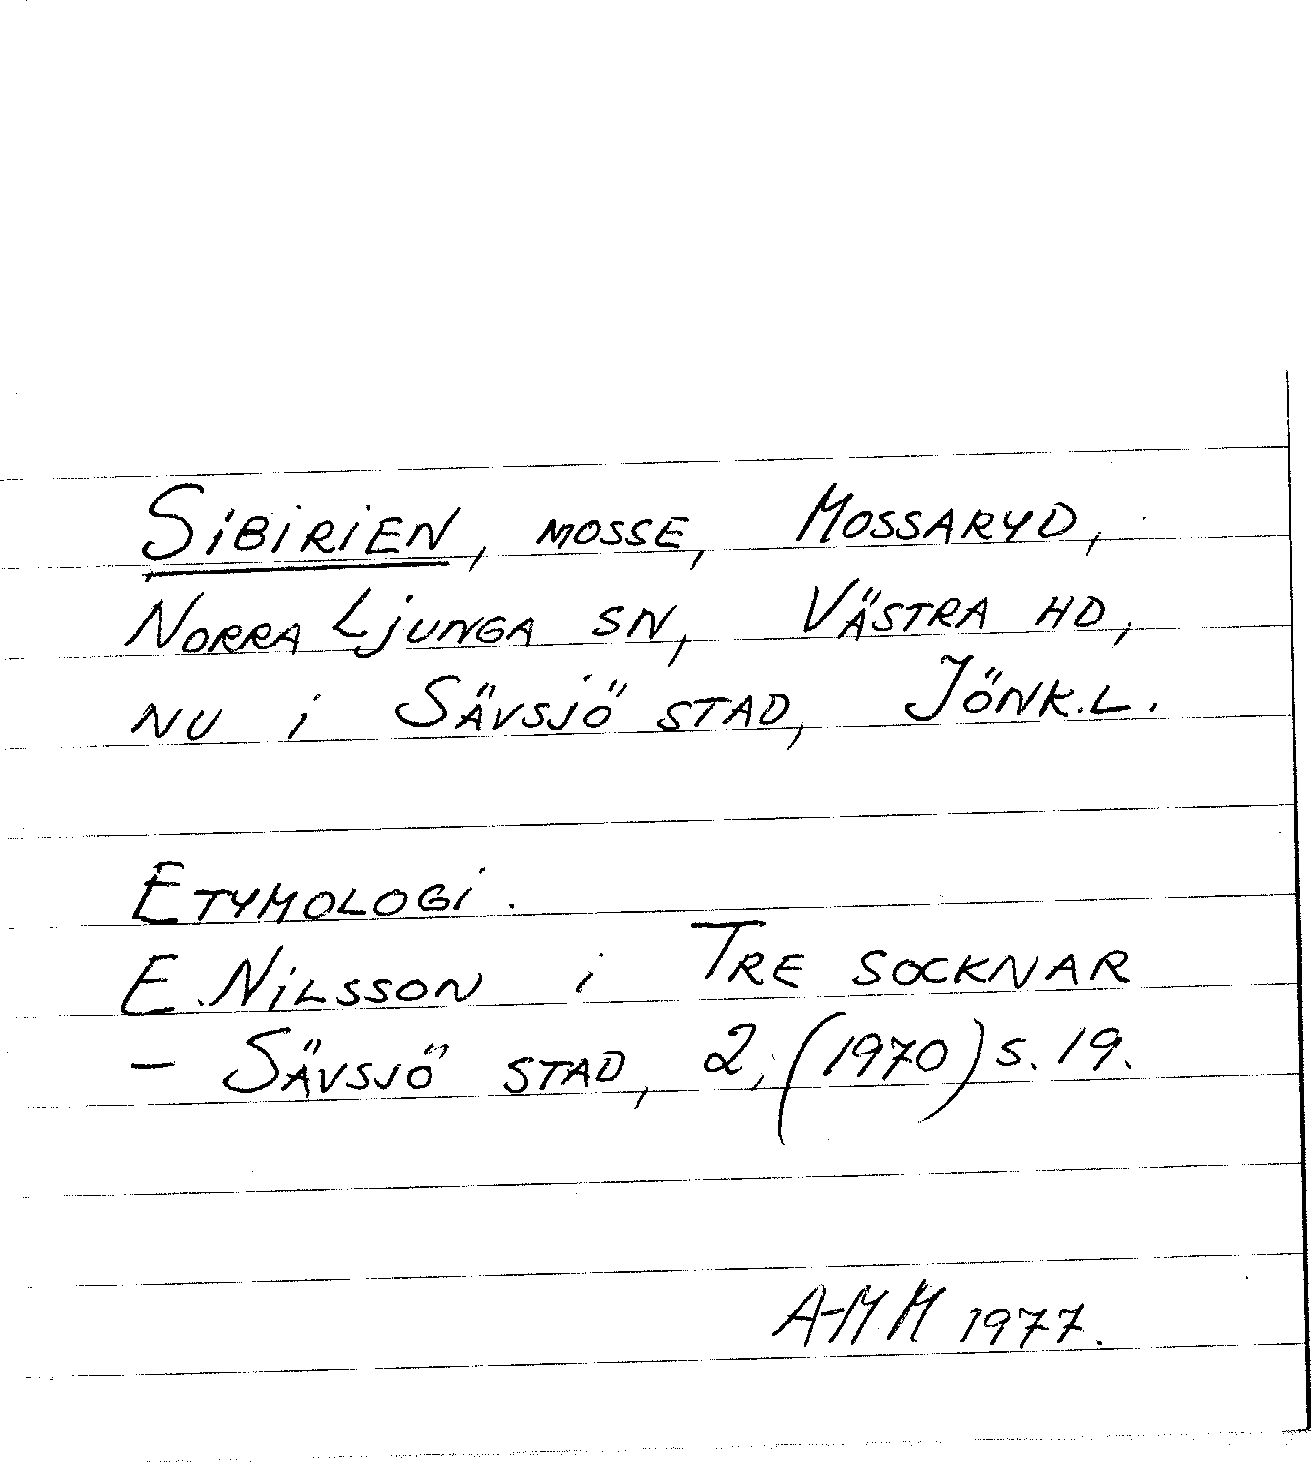 SIBIRIEN, MOSSE, MOSSARYD,
NORRA LJUNGA SN, VÄSTRA HD,
NU I SÄVSJÖ STAD, JÖNK.L.
ETYMOLOGI.
E. NILSSON I TRE SOCKNAR
– SÄVSJÖ STAD, 2, (1970) S. 19.
A-MM 1977.